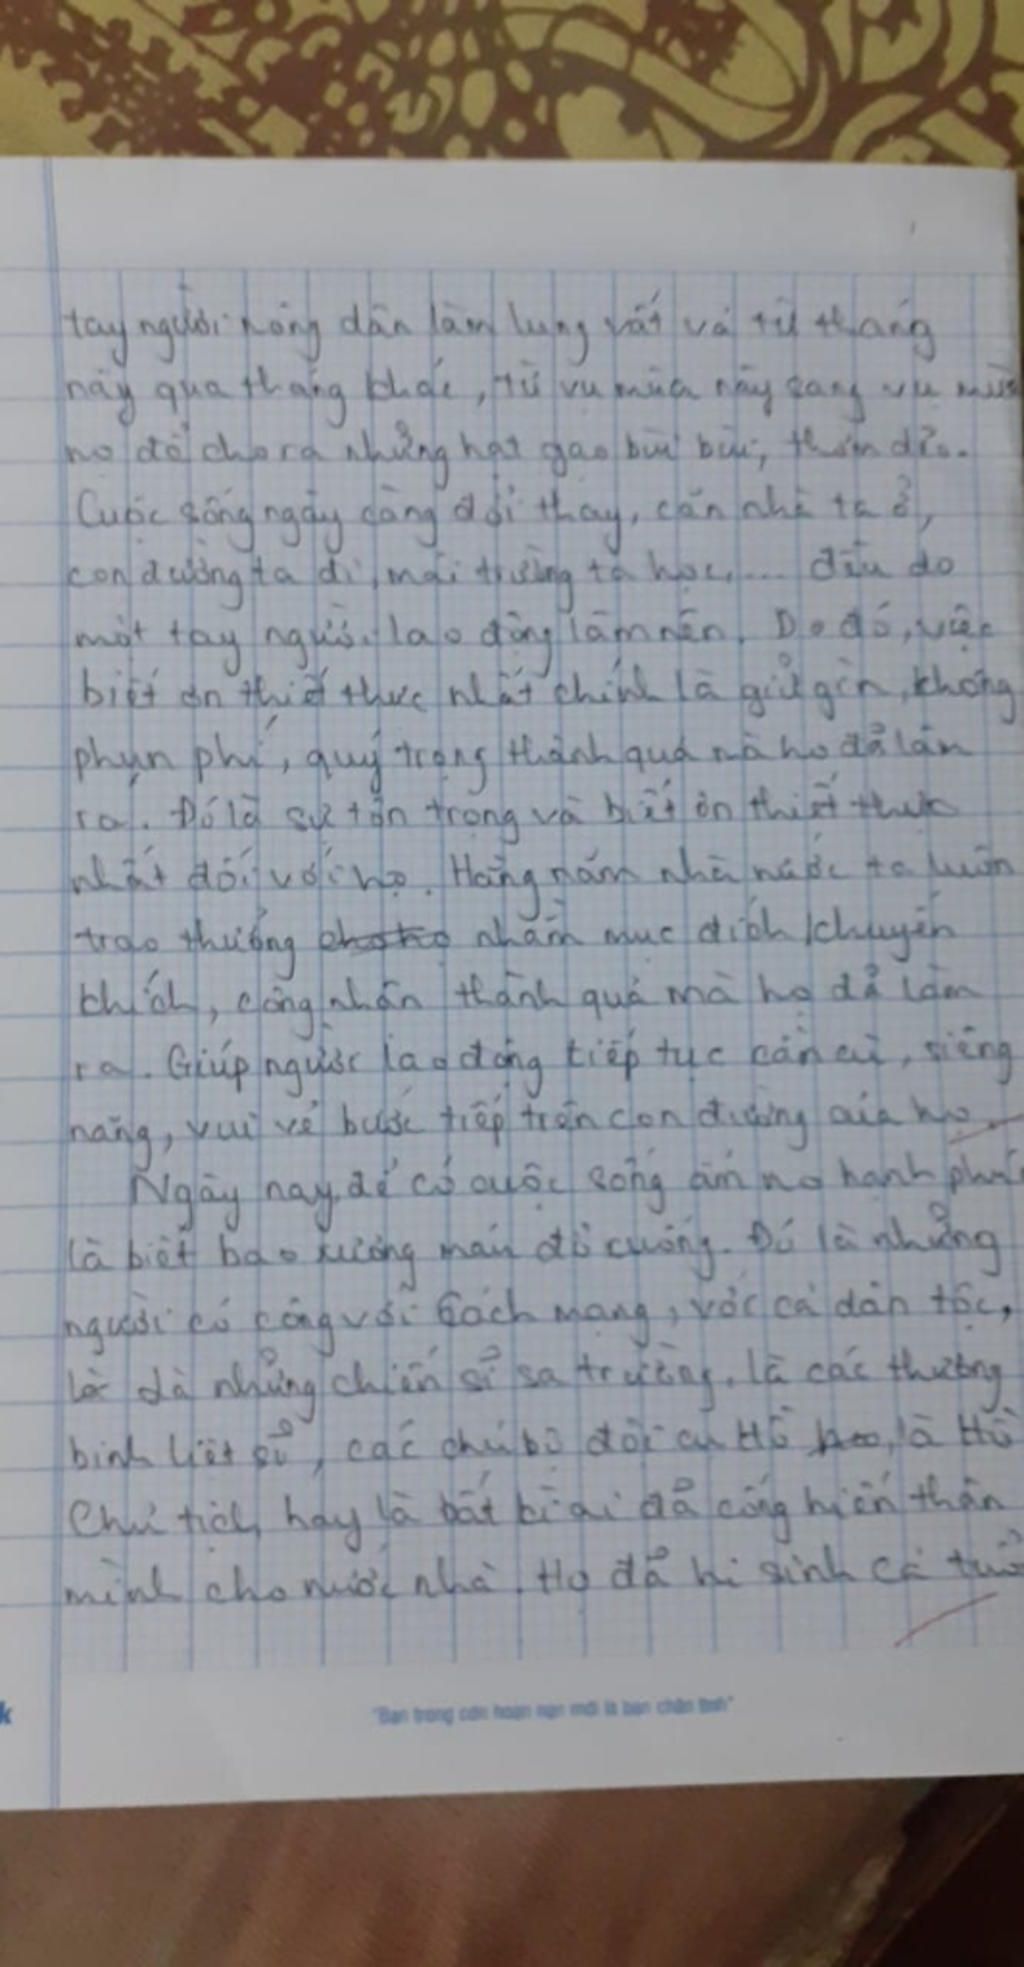 tay người nông dân làm lụng vất vả từ tháng
này qua tháng khác, từ vụ mùa này sang vụ mùa
nọ để cho ra những hạt gạo bùi bùi, thơm dẻo.
Cuộc sống ngày càng đổi thay, căn nhà ta ở,
con đường ta đi, mái trường ta học,... đều do
một tay người lao động làm nên. Do đó, việc
biết ơn thiết thực nhất chính là giữ gìn, không
phun phí, quý trọng thành quả mà họ đã làm
ra. Đó là sự tôn trọng và biết ơn thiết thực
nhất đối với họ. Hàng năm nhà nước ta luôn
trao thưởng nhằm mục đích khuyến
khích, công nhận thành quả mà họ đã làm
ra. Giúp người lao động tiếp tục cần cù, siêng
năng, vui vẻ bước tiếp trên con đường của họ.
Ngày nay, để có cuộc sống ấm no hạnh phúc
là biết bao xương máu đổ xuống. Đó là những
người có công với Cách mạng, với cả dân tộc,
là những chiến sĩ sa trường, là các thương
binh liệt sĩ, các chú bộ đội cụ Hồ, là Hồ
Chủ tịch, hay là bất kì ai đã cống hiến thân
mình cho nước nhà. Họ đã hi sinh cả
k
"Bạn trong cơn hoạn nạn mới là bạn chân tình"